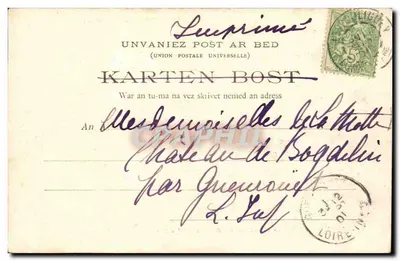 Imprimé
UNVANIEZ POST AR BED
(UNION POSTALE UNIVERSELLE)
KARTEN BOST
War an tu-ma na vez skrivet nemed an adress
An Mesdemoiselles de la Motte
Château de Bogdelin
par Guenrouët
L. Inf
12
01
LOIRE-INF